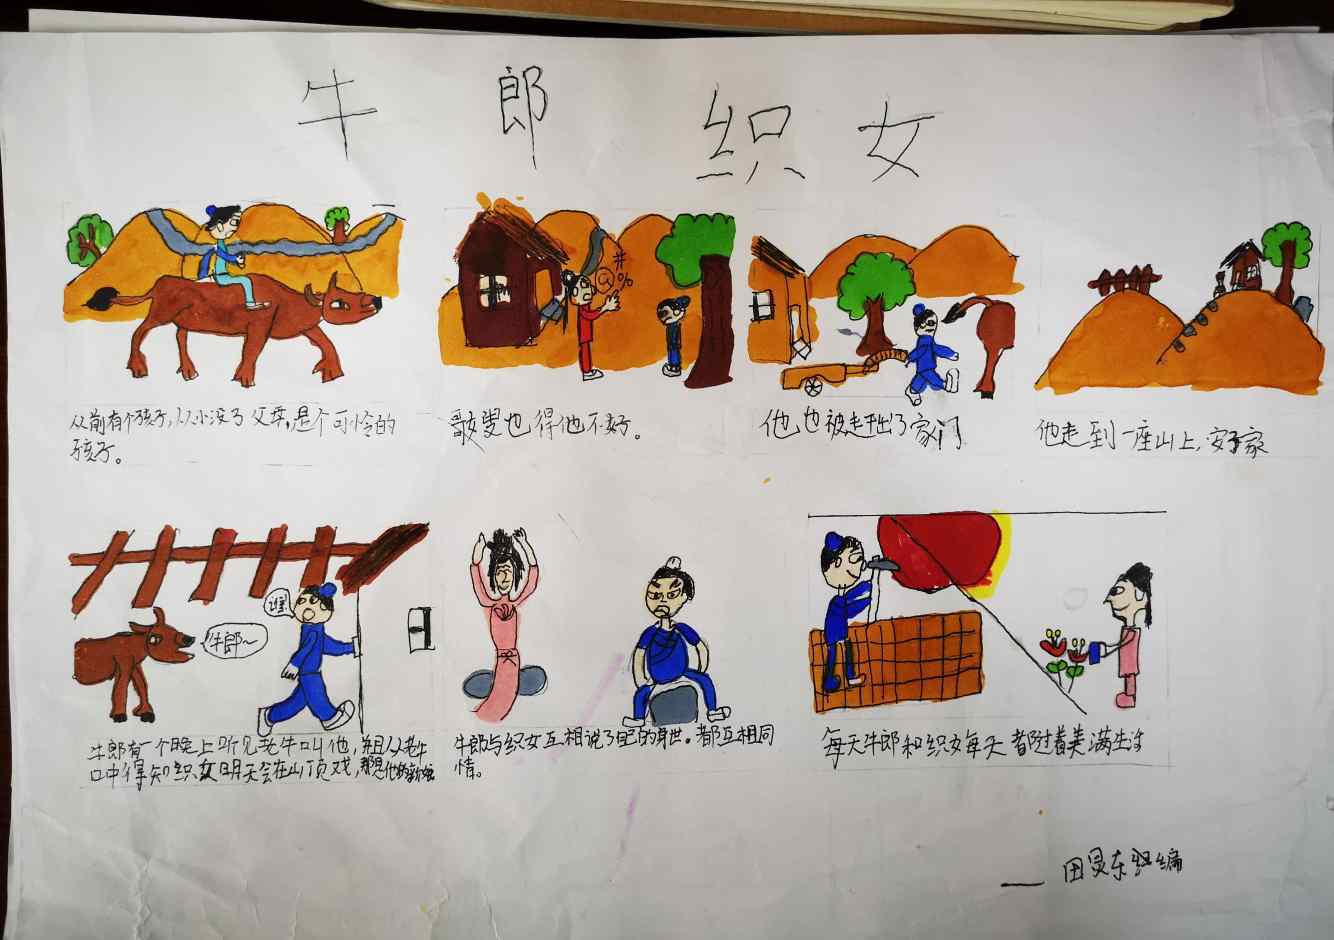 牛郎织女
从前有个孩子，从小没了父母，是个可怜的
孩子。
也得他不好。
他也被赶出了家门
他走到一座山上，安了家
谁！
牛郎～
牛郎有一个晚上听见老牛叫他，并且从老牛
口中得知织女明天会在山顶戏，那是他的新娘
牛郎与织女互相说了自己的身世。都互相同
情。
每天牛郎和织女每天都过着美满生活